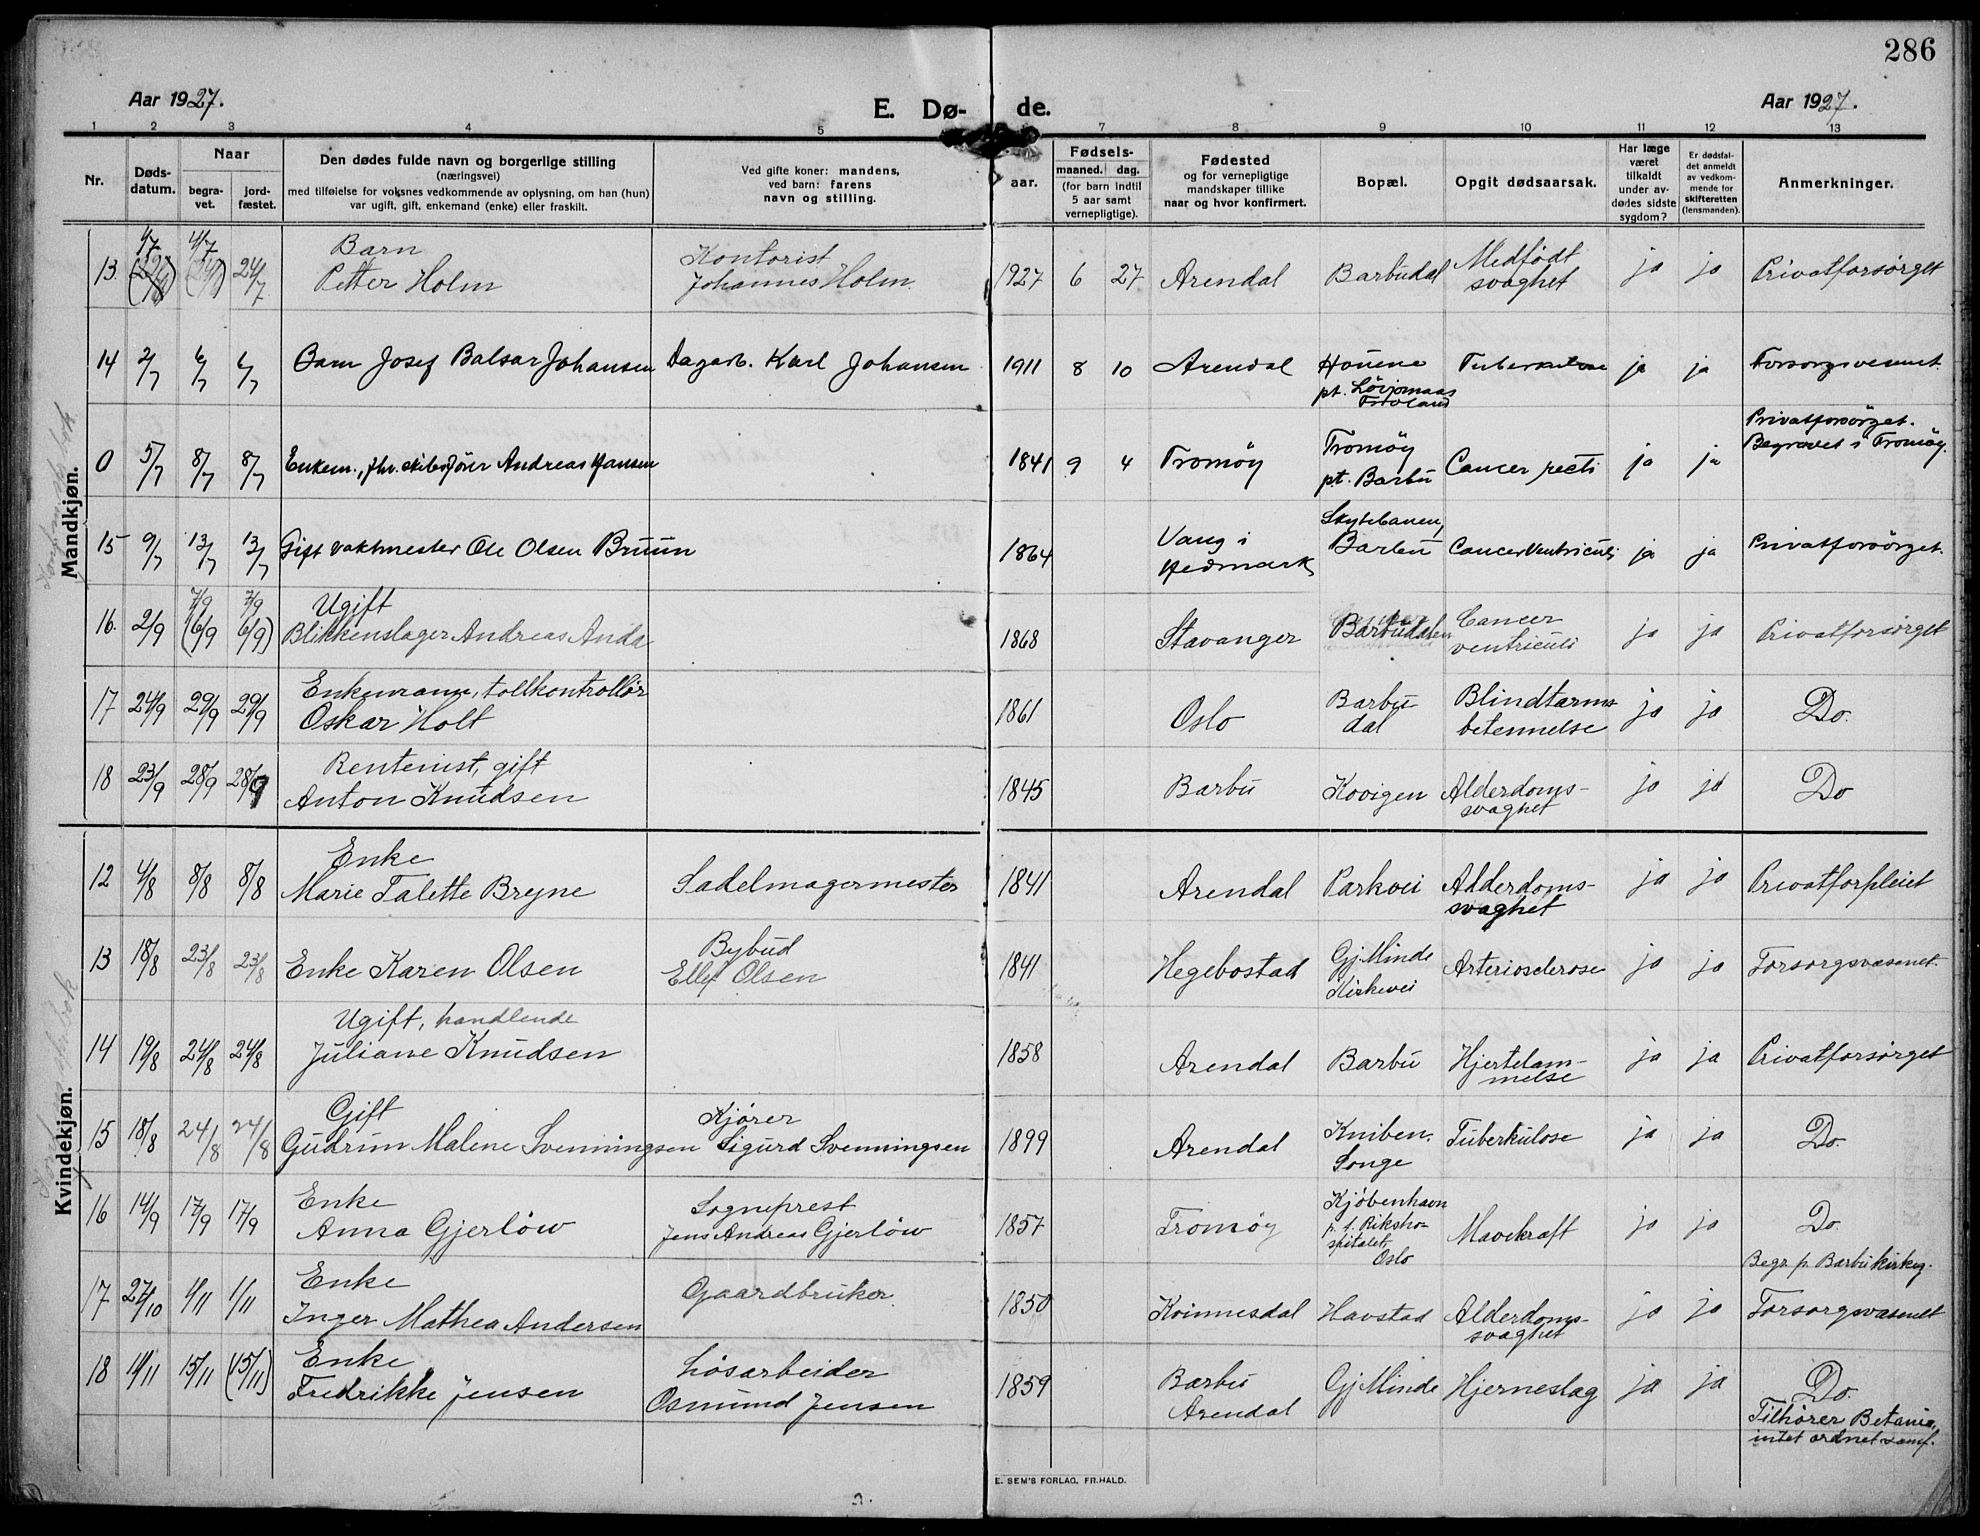 286
Aar 1927.
E. Dø-
de.
Aar 1927.
1 2 3 4 5 7 8 9 10 11 12 13
Nr.
Døds-
datum.
Naar
begra-
vet.
jord-
fæstet.
Den dødes fulde navn og borgerlige stilling
(næringsvei)
med tilføielse for voksnes vedkommende av oplysning, om han (hun)
var ugift, gift, enkemand (enke) eller fraskilt.
Ved gifte koner: mandens,
ved barn: farens
navn og stilling.
aar.
Fødsels-
maaned. dag.
(for barn indtil
5 aar samt
vernepligtige).
Fødested
og for vernepligtige
mandskaper tillike
naar og hvor konfirmert.
Bopæl.
Opgit dødsaarsak.
Har læge
været
tilkaldt
under av-
dødes sidste
sygdom?
Er dødsfal-
det anmeldt
av vedkom-
mende for
skifteretten
(lensmanden).
Anmerkninger.
Mandkjøn.
13. 1/7 4/7 24/7 Barn
Petter Holm
Kontorist
Johannes Holm.
1927 6 27 Arendal Barbudal Medfödt
svaghet
ja ja Privatforsørget
14 2/7 6/7 6/7 Barn Josef Balsar Johansen Dagarb. Karl Johansen 1911 8 10 Arendal Houene
pt. Løvjomaas
Froland
Tuberkulose ja ja Forsorgsvesenet.
0 5/7 8/7 8/7 Enkem., fhv. skibsfører Andreas Hansen 1841 9 4 Tromöy Tromöy
pt. Barbu
Cancer recti ja ja Privatforsørget.
Begravet i Tromöy.
15 9/7 13/7 13/7 Gift vaktmester Ole Olsen Bruun 1864 Vang i
Hedmark
Skytebanen,
Barbu
Cancer Ventriculi ja ja Privatforsørget.
16. 2/9 7/9 (6/9 7/9 6/9) Ugift
Blikkenslager Andreas Anda
1868 Stavanger Barbudalen Cancer
ventriculi
ja ja Privatforsørget
17 24/9 29/9 29/9 Enkemann, tollkontrollör
Oskar Holt
1861 Oslo Barbu
dal
Blindtarms-
betennelse
ja ja Do.
18 23/9 28/9 28/9 Rentenist, gift
Anton Knudsen
1845 Barbu Kovigen Alderdoms-
svaghet
ja ja Do
Kvindekjøn.
12 4/8 8/8 8/8 Enke
Marie Talette Bryne
Sadelmagermester 1841 Arendal Parkvei Alderdoms-
svaghet
ja ja Privatforpleiet
13 18/8 23/8 23/8 Enke Karen Olsen
Bybud
Ellef Olsen
1841 Hegebostad Gj.Minde
Kirkevei
Arteriosclerose ja ja Forsorgsvæsenet.
14 19/8 24/8 24/8 Ugift, handlende
Juliane Knudsen
1858 Arendal Barbu Hjertelam-
melse
ja ja Privatforsørget
15 18/8 24/8 24/8 Gift
Gudrun Malene Svenningsen
Kjörer
Sigurd Svenningsen
1899 Arendal Kniben.
Songe
Tuberkulose ja ja Do.
16 14/9 17/9 17/9 Enke
Anna Gjerlöw
Sogneprest
Jens Andreas Gjerlöw
1857 Tromöy Kjöbenhavn
p.t. Riksho-
spitalet,
Oslo
Mavekræft ja ja Do.
Begr. p. Barbu kirkeg.
17 27/10 1/11 1/11 Enke
Inger Mathea Andersen
Gaardbruker 1850 Kvinnesdal Havstad Alderdoms-
svaghet
ja ja Forsorgsvæsenet
18 11/11 15/11 (15/11) Enke
Fredrikke Jensen
Lösarbeider
Osmund Jensen
1859 Barbu
Arendal
Gj.Minde Hjerneslag ja ja Do.
Tilhører Betania,
intet ordnet samf.
E. SEM'S FORLAG, FR.HALD.